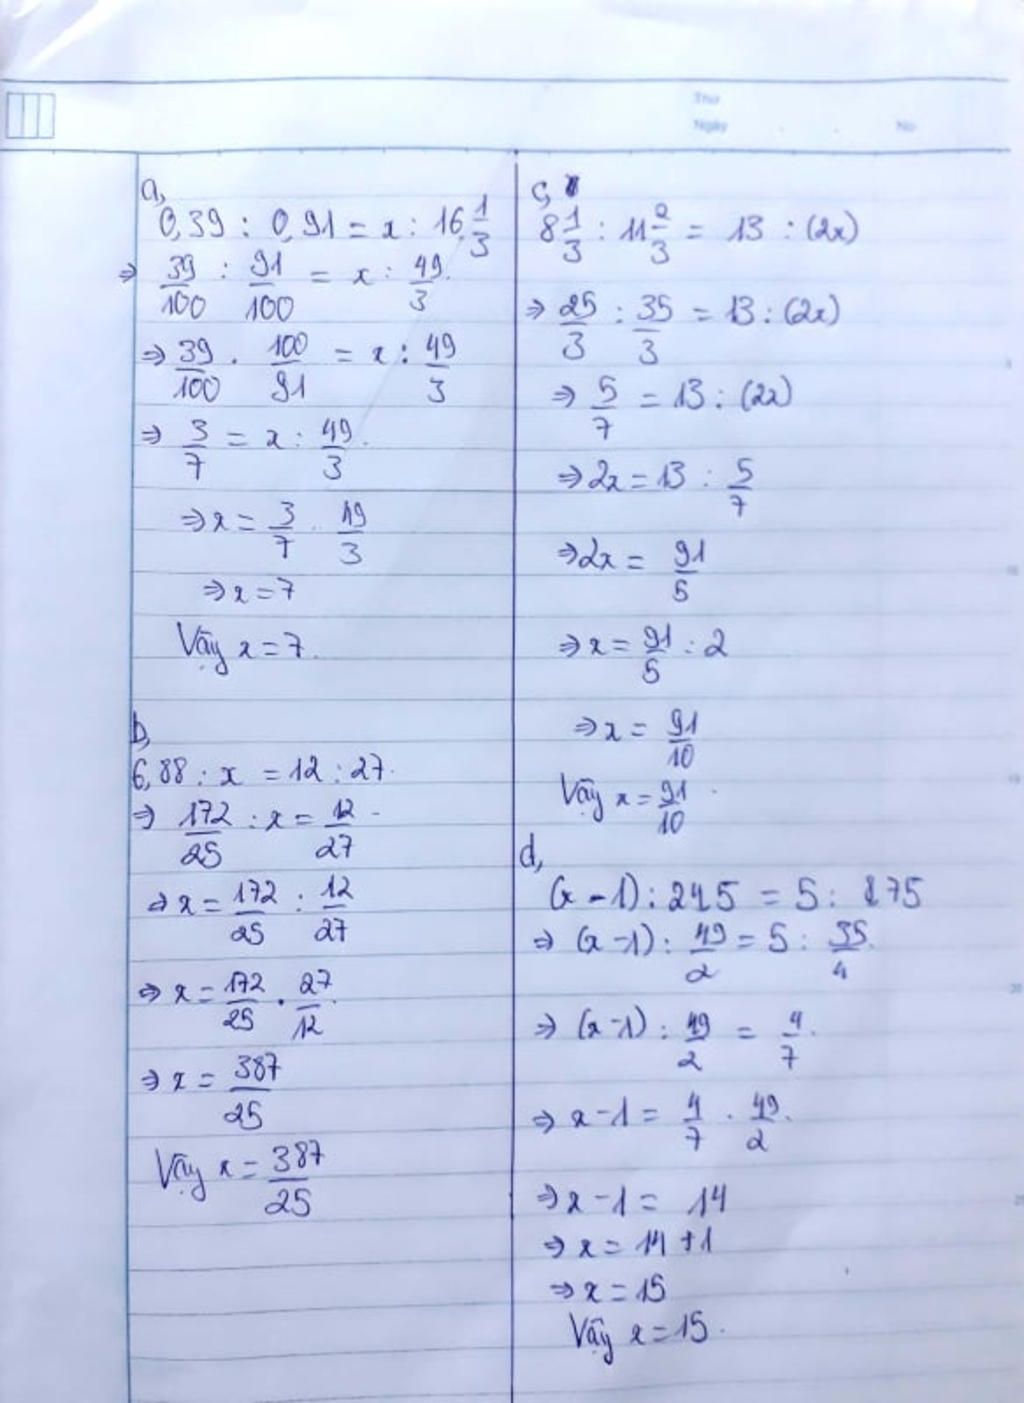 Thứ
Ngày No
a,
0,39 : 0,91 = x : 16 1/3
⇒ 39/100 : 91/100 = x : 49/3
⇒ 39/100 . 100/91 = x : 49/3
⇒ 3/7 = x : 49/3
⇒ x = 3/7 . 49/3
⇒ x = 7
Vậy x = 7.
b,
6,88 : x = 12 : 27
⇒ 172/25 : x = 12/27
⇒ x = 172/25 : 12/27
⇒ x = 172/25 . 27/12
⇒ x = 387/25
Vậy x = 387/25
c,
8 1/3 : 11 2/3 = 13 : (2x)
⇒ 25/3 : 35/3 = 13 : (2x)
⇒ 5/7 = 13 : (2x)
⇒ 2x = 13 : 5/7
⇒ 2x = 91/5
⇒ x = 91/5 : 2
⇒ x = 91/10
Vậy x = 91/10
d,
(x - 1) : 24,5 = 5 : 8,75
⇒ (x - 1) : 49/2 = 5 : 35/4
⇒ (x - 1) : 49/2 = 4/7
⇒ x - 1 = 4/7 . 49/2
⇒ x - 1 = 14
⇒ x = 14 + 1
⇒ x = 15
Vậy x = 15.